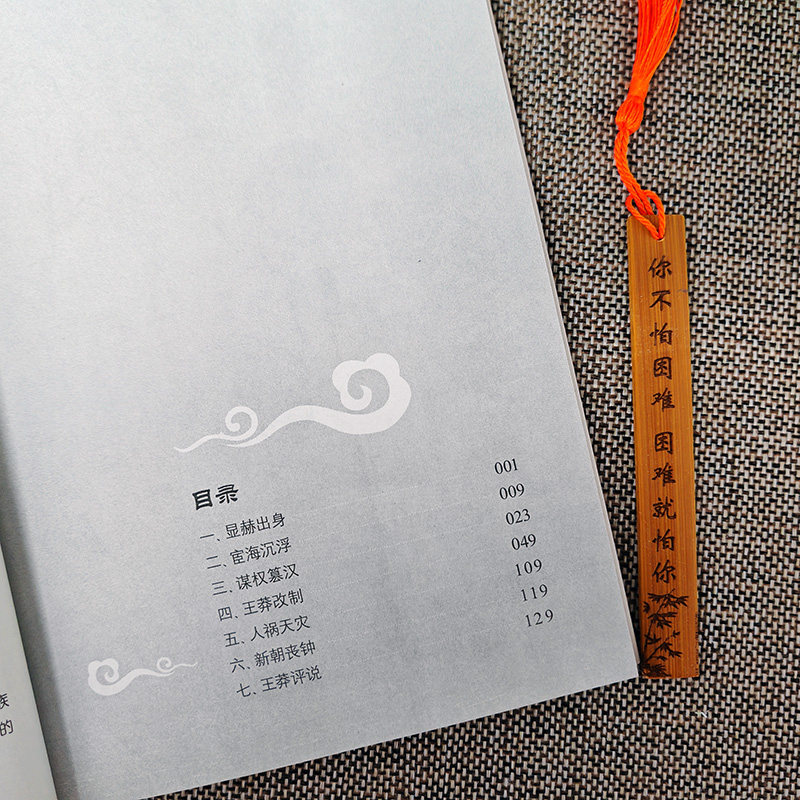 目录
一、显赫出身 001
二、宦海沉浮 009
三、谋权篡汉 023
四、王莽改制 049
五、人祸天灾 109
六、新朝丧钟 119
七、王莽评说 129
族
的
你不怕困难 困难就怕你